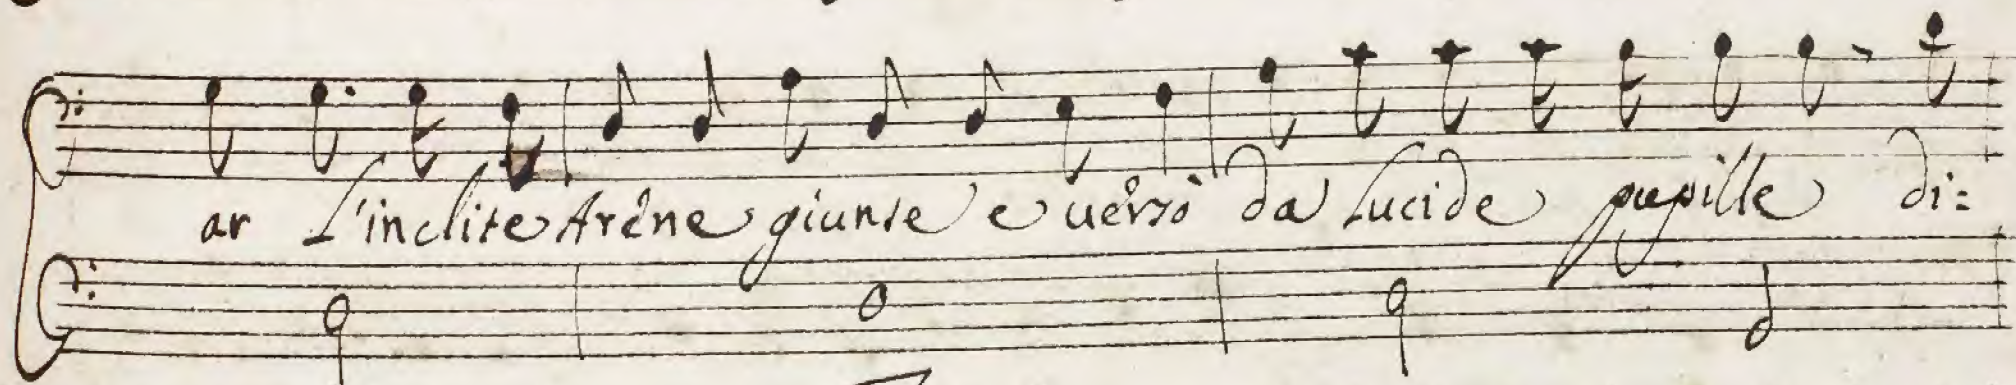 ar L'inclite Arène giunse e versò da Lucide pupille di=